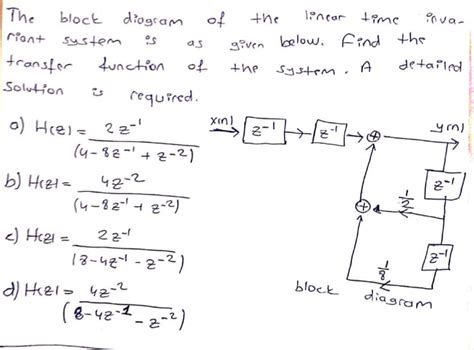 The block diogram of the linear time inva-
riant system is as given below. Find the
transfer function of the system. A detailed
Solution is required.
a) H(z) = 2z⁻¹
(4-8z⁻¹ + z⁻²)
b) H(z) = 4z⁻²
(4-8z⁻¹ + z⁻²)
c) H(z) = 2z⁻¹
(8-4z⁻¹ - z⁻²)
d) H(z) = 4z⁻²
(8-4z⁻¹ - z⁻²)
x[n] z⁻¹ z⁻¹ + y[n]
z⁻¹
+ 1/2
z⁻¹
1/8
block diagram